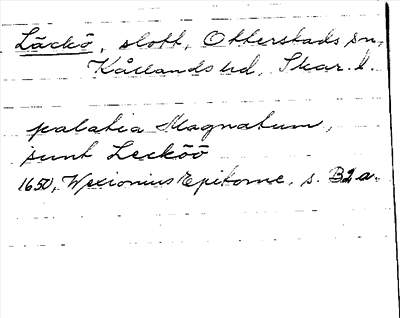 Läckö, slott, Otterstads sn,
Kållands hd, Skar. l.
palatia Magnatum,
sunt Leckӧӧ
1650, Wexionius Epitome, s. B2a.